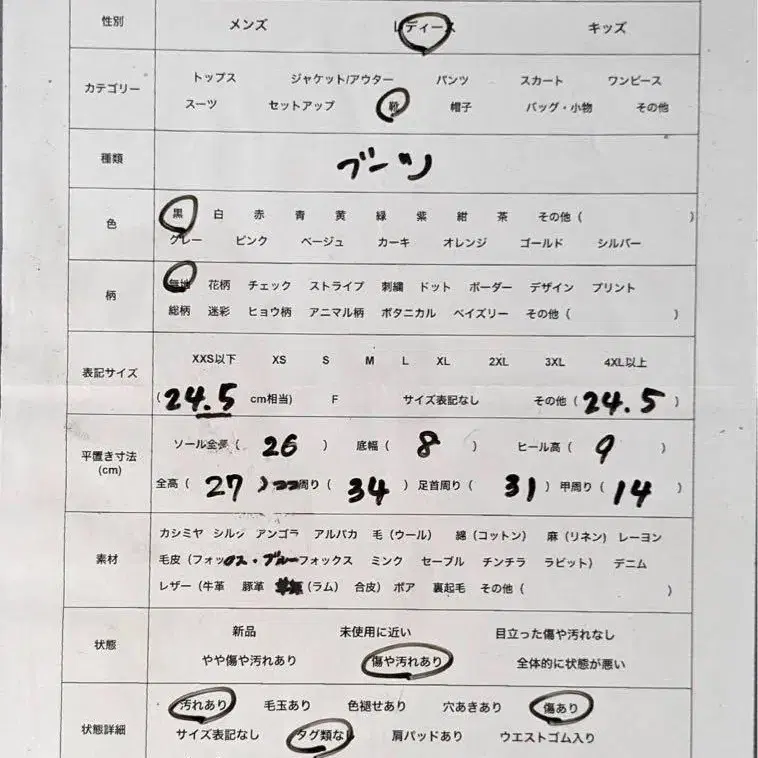 性別 メンズ レディース キッズ
カテゴリー
トップス ジャケット/アウター パンツ スカート ワンピース
スーツ セットアップ 靴 帽子 バッグ・小物 その他
種類 ブーツ
色
黒 白 赤 青 黄 緑 紫 紺 茶 その他 ( )
グレー ピンク ベージュ カーキ オレンジ ゴールド シルバー
柄
無地 花柄 チェック ストライプ 刺繍 ドット ボーダー デザイン プリント
総柄 迷彩 ヒョウ柄 アニマル柄 ボタニカル ペイズリー その他 ( )
表記サイズ
XXS以下 XS S M L XL 2XL 3XL 4XL以上
(24.5 cm相当) F サイズ表記なし その他 (24.5)
平置き寸法
(cm)
ソール全長 ( 26 ) 底幅 ( 8 ) ヒール高 ( 9 )
全高 ( 27 ) 周り ( 34 ) 足首周り ( 31 ) 甲周り ( 14 )
素材
カシミヤ シルク アンゴラ アルパカ 毛 (ウール) 綿 (コットン) 麻 (リネン) レーヨン
毛皮 (フォックス・ブルーフォックス ミンク セーブル チンチラ ラビット) デニム
レザー (牛革 豚革 (ラム) 合皮) ボア 裏起毛 その他 ( )
状態
新品 未使用に近い 目立った傷や汚れなし
やや傷や汚れあり 傷や汚れあり 全体的に状態が悪い
状態詳細
汚れあり 毛玉あり 色褪せあり 穴あきあり 傷あり
サイズ表記なし タグ類なし 肩パッドあり ウエストゴム入り